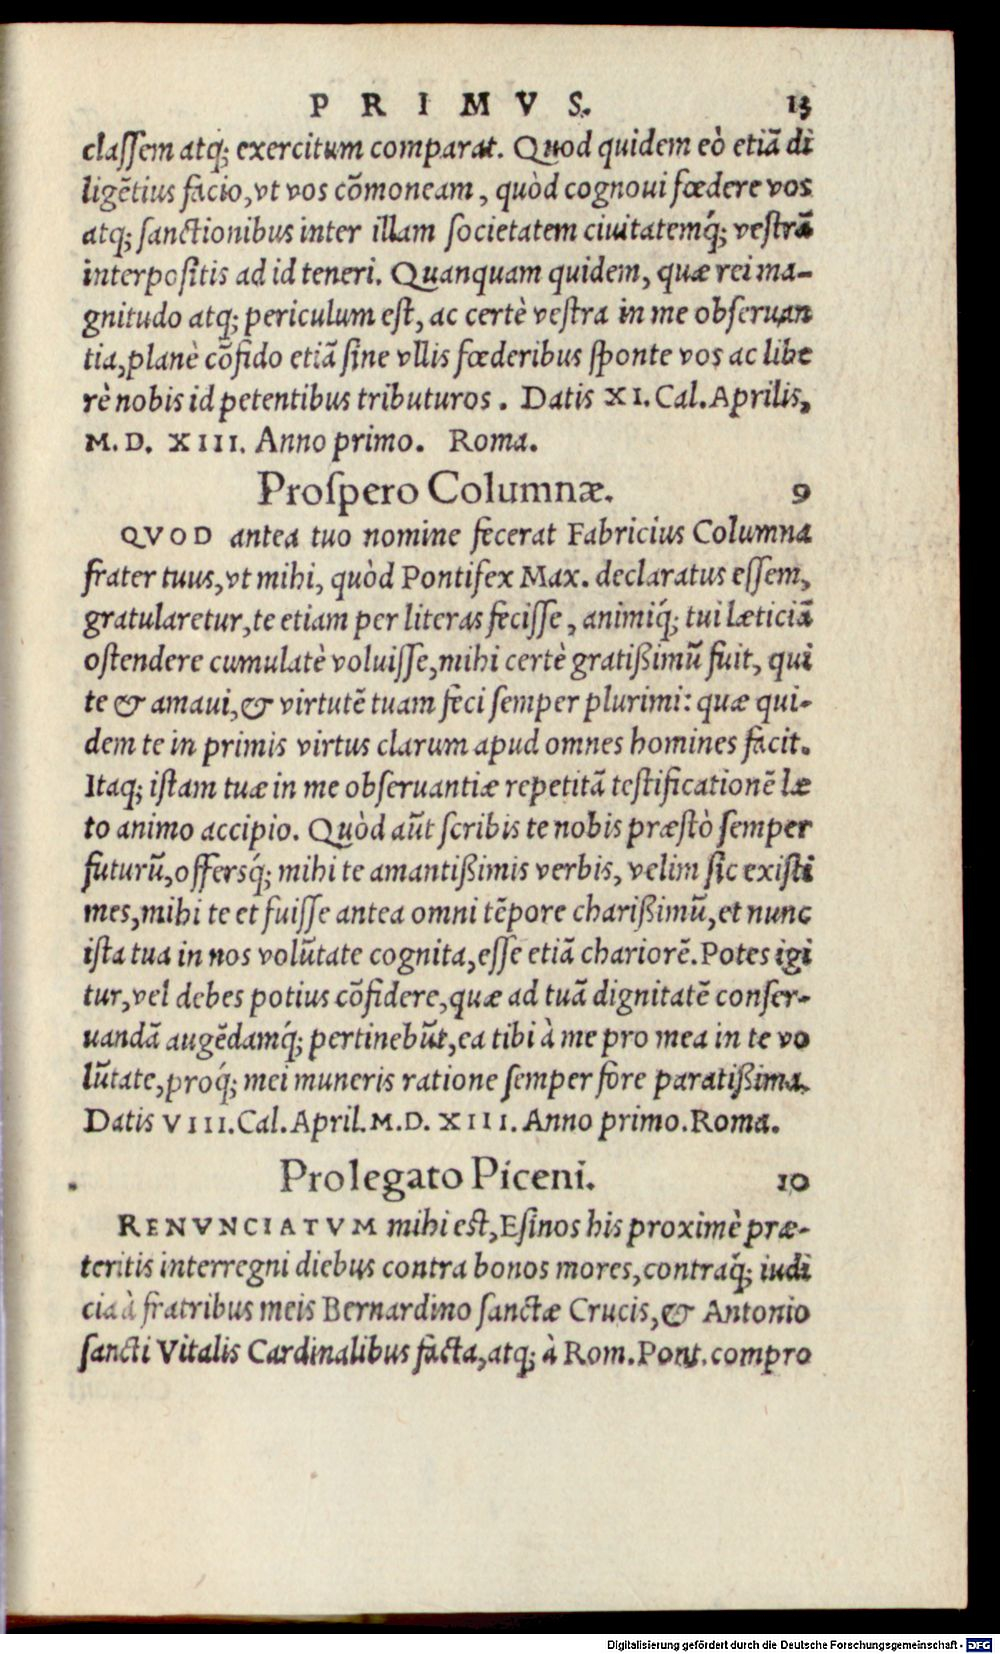 PRIMVS. 13
classem atq; exercitum comparat. Quod quidem eò etiā di
ligētius facio, vt vos cōmoneam, quòd cognoui fœdere vos
atq; sanctionibus inter illam societatem ciuitatemq́; vestrā
interpositis ad id teneri. Quanquam quidem, quæ rei ma-
gnitudo atq; periculum est, ac certè vestra in me obseruan
tia, planè cōfido etiā sine vllis fœderibus sponte vos ac libe
rè nobis id petentibus tributuros. Datis XI. Cal. Aprilis,
M. D. XIII. Anno primo. Roma.
Prospero Columnæ. 9
QVOD antea tuo nomine fecerat Fabricius Columna
frater tuus, vt mihi, quòd Pontifex Max. declaratus essem,
gratularetur, te etiam per literas fecisse, animiq́; tui læticiā
ostendere cumulatè voluisse, mihi certè gratißimū fuit, qui
te & amaui, & virtutē tuam feci semper plurimi: quæ qui-
dem te in primis virtus clarum apud omnes homines facit.
Itaq; istam tuæ in me obseruantiæ repetitā testificationē læ
to animo accipio. Quòd aūt scribis te nobis præstò semper
futurū, offersq́; mihi te amantißimis verbis, velim sic existi
mes, mihi te et fuisse antea omni tēpore charißimū, et nunc
ista tua in nos volūtate cognita, esse etiā chariorē. Potes igi
tur, vel debes potius cōfidere, quæ ad tuā dignitatē conser-
uandā augēdamq́; pertinebūt, ea tibi à me pro mea in te vo
lūtate, proq́; mei muneris ratione semper fore paratißima.
Datis VIII. Cal. April. M.D. XIII. Anno primo. Roma.
Prolegato Piceni. 10
RENVNCIATVM mihi est, Esinos his proximè præ-
teritis interregni diebus contra bonos mores, contraq́; iudi
cia à fratribus meis Bernardino sanctæ Crucis, & Antonio
sancti Vitalis Cardinalibus facta, atq; à Rom. Pont. compro
Digitalisierung gefördert durch die Deutsche Forschungsgemeinschaft - DFG